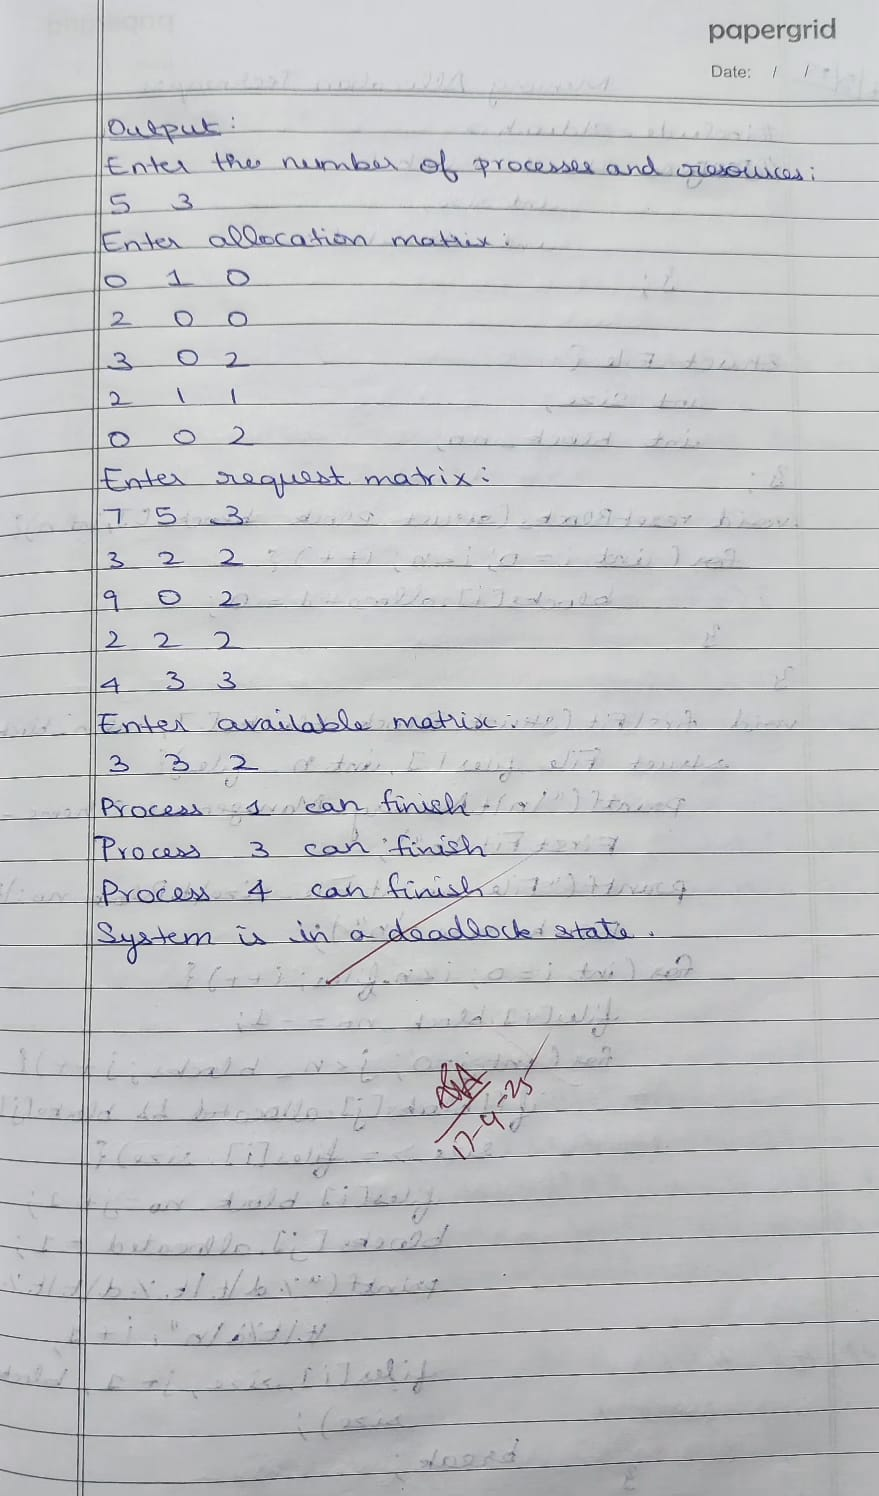 papergrid
Date: / /
Output:
Enter the number of processes and resources:
5 3
Enter allocation matrix:
0 1 0
2 0 0
3 0 2
2 1 1
0 0 2
Enter request matrix:
7 5 3
3 2 2
9 0 2
2 2 2
4 3 3
Enter available matrix.
3 3 2
Process 1 can finish
Process 3 can finish
Process 4 can finish
System is in a deadlock state.
17-9-25